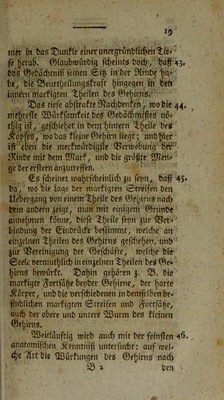 19
mer in das Dunkle einer unergründlichen Tie-
fe herab. Glaubwürdig scheints doch, daß 43.
das Gedächtniß seinen Sitz in der Rinde ha-
be, die Beurtheilungskraft hingegen in den
innern markigten Theilen des Gehirns.
Das tiefe abstrakte Nachdenken, wo die 44.
mehreste Würksamkeit des Gedächtnißes nö-
thig ist, geschiehet in dem hintern Theile des
Kopfes, wo das kleine Gehirn liegt; und hier
ist eben die merkwürdigste Verwebung der
Rinde mit dem Mark, und die größte Men-
ge der erstern anzutreffen.
Es scheinet wahrscheinlich zu seyn, daß 45.
da, wo die Lage der markigten Streifen den
Uebergang von einem Theile des Gehirns nach
dem andern zeigt, man mit einigem Grunde
annehmen könne, diese Theile seyn zur Ver-
bindung der Eindrücke bestimmt, welche an
einzelnen Theilen des Gehirns geschehen, und
zur Vereinigung der Geschäfte, welche die
Seele vermuthlich in einzelnen Theilen des Ge-
hirns bewürkt. Dahin gehören z. B. die
markigte Fortsätze beyder Gehirne, der harte
Körper, und die verschiedenen in demselben be-
findlichen markigten Streifen und Fortsätze,
auch der obere und untere Wurm des kleinen
Gehirns.
Weitläuftig wird auch mit der feinsten 46.
anatomischen Kenntniß untersucht: auf wel-
che Art die Würkungen des Gehirns nach
B 2 den